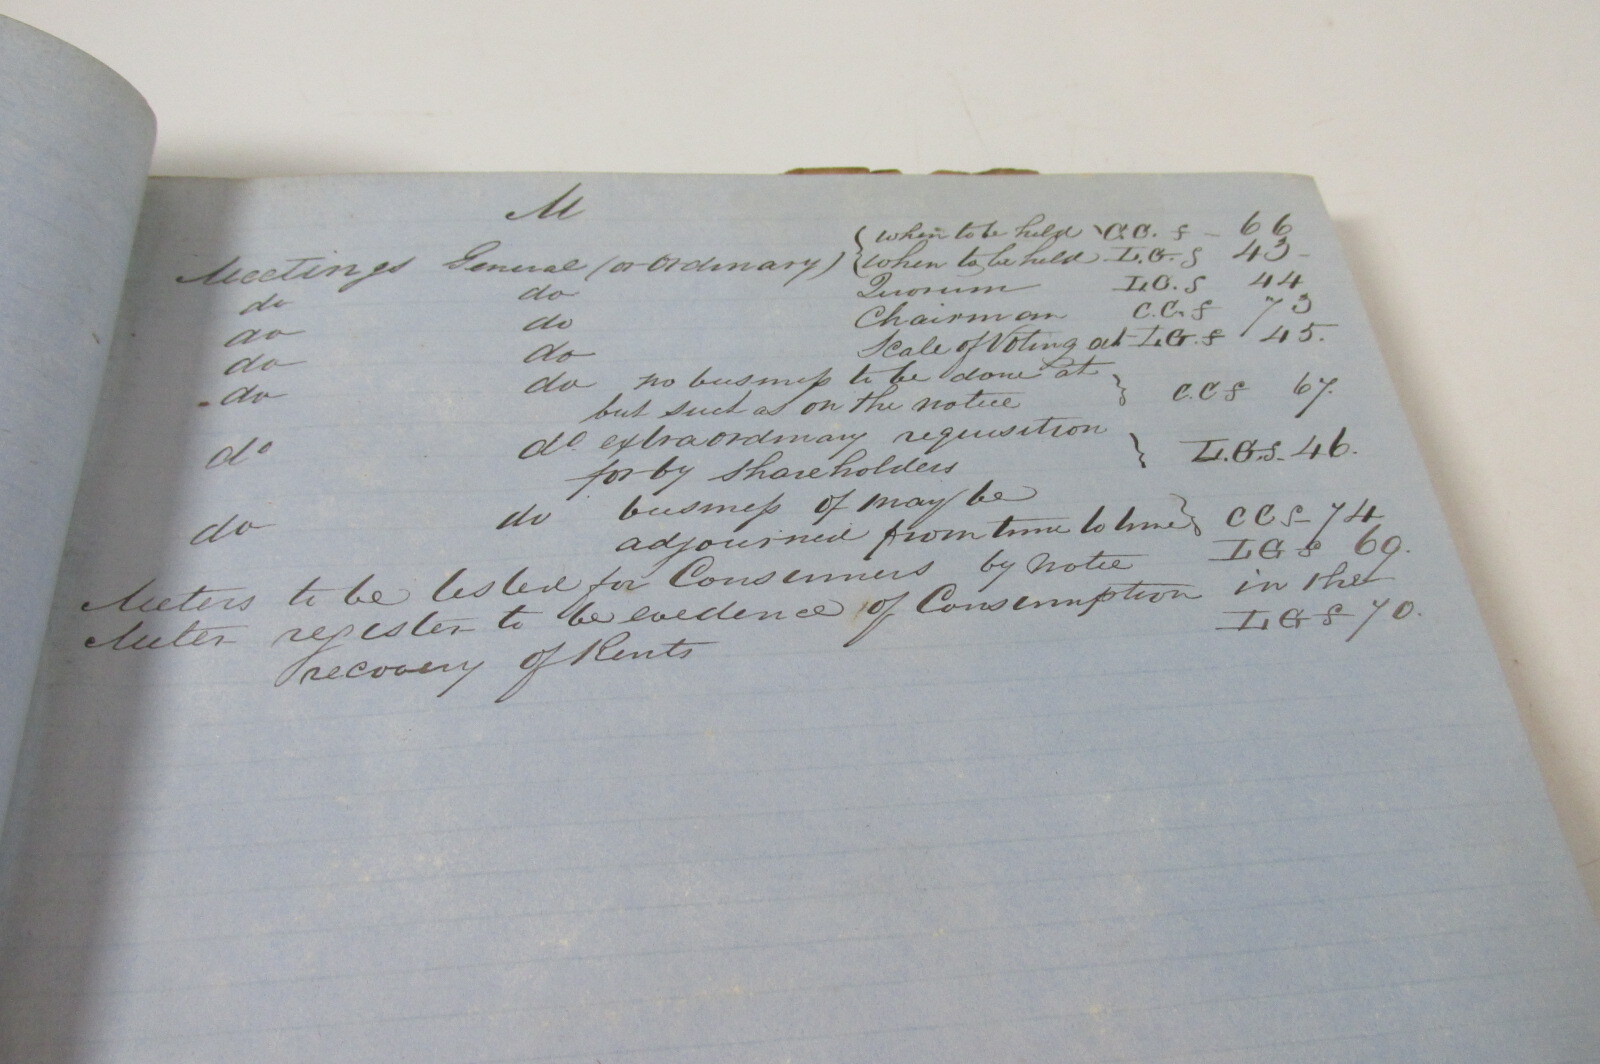 M
Meetings General (or Ordinary) { when to be held C.C. s - 66
{ when to be held L.G. s 43 -
do do Quorum L.G. s 44
do do Chairman C.C. s 73
do do Scale of Voting at L.G. s 45.
do do no business to be done at } C.C s 67.
but such as on the notice
do do extraordinary requisition } L.G.s. 46.
for by Shareholders
do do business of may be } C C s 74
adjourned from time to time
Meters to be tested for Consumers by notice L G s 69.
Meter register to be evidence of Consumption in the
recovery of Rents L G S 70.